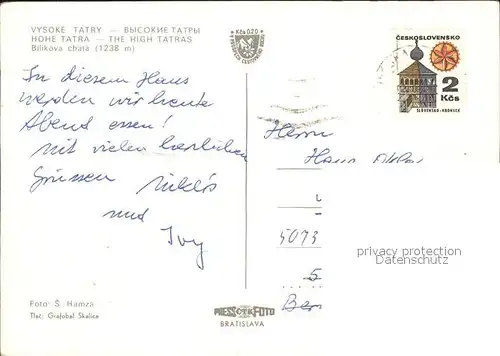 VYSOKÉ TATRY — ВЫСОКИЕ ТАТРЫ
HOHE TATRA — THE HIGH TATRAS
Bilíkova chata (1238 m)
Kčs 0,20
ČESKOSLOVENSKO
2
Kčs
SLOVENSKO - HRONSEK
In diesem Haus
werden wir heute
Abend essen!
Mit vielen herzlichen
Grüssen Miklós
und
Ivy
Herrn
Hans
5073
privacy protection
Datenschutz
Ber
Foto: Š. Hamza
Tlač: Grafobal Skalica
PRESSFOTO
BRATISLAVA